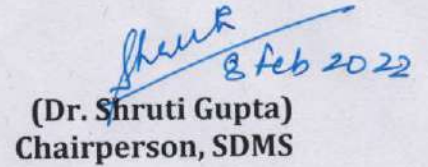 Shruti
8 Feb 2022
(Dr. Shruti Gupta)
Chairperson, SDMS